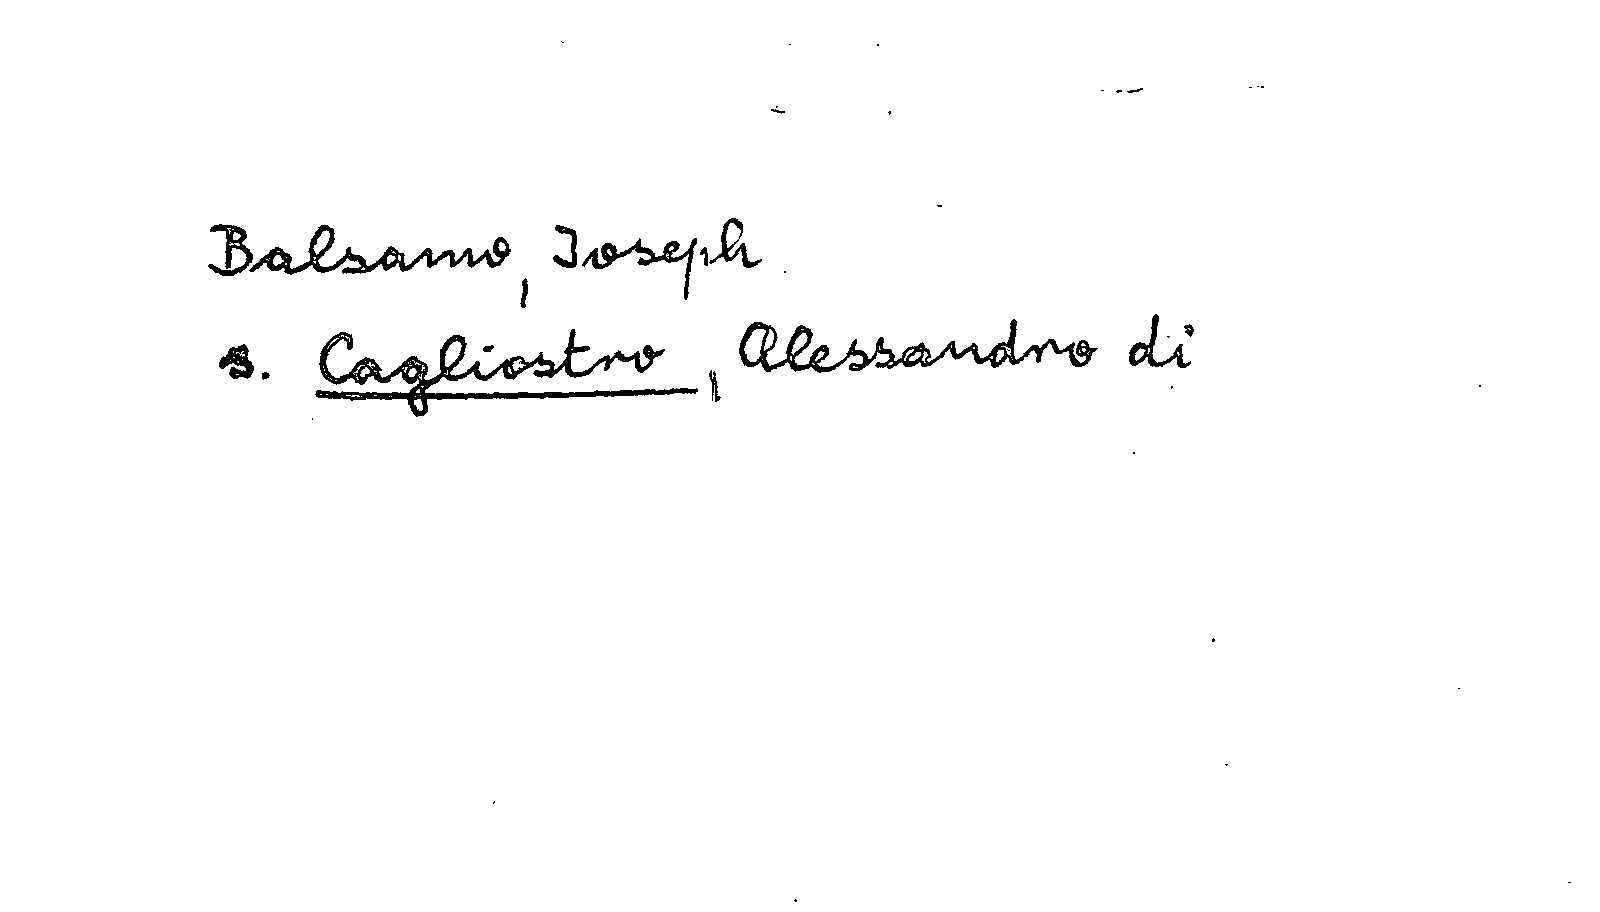 Balsamo, Joseph
s. Cagliostro, Alessandro di